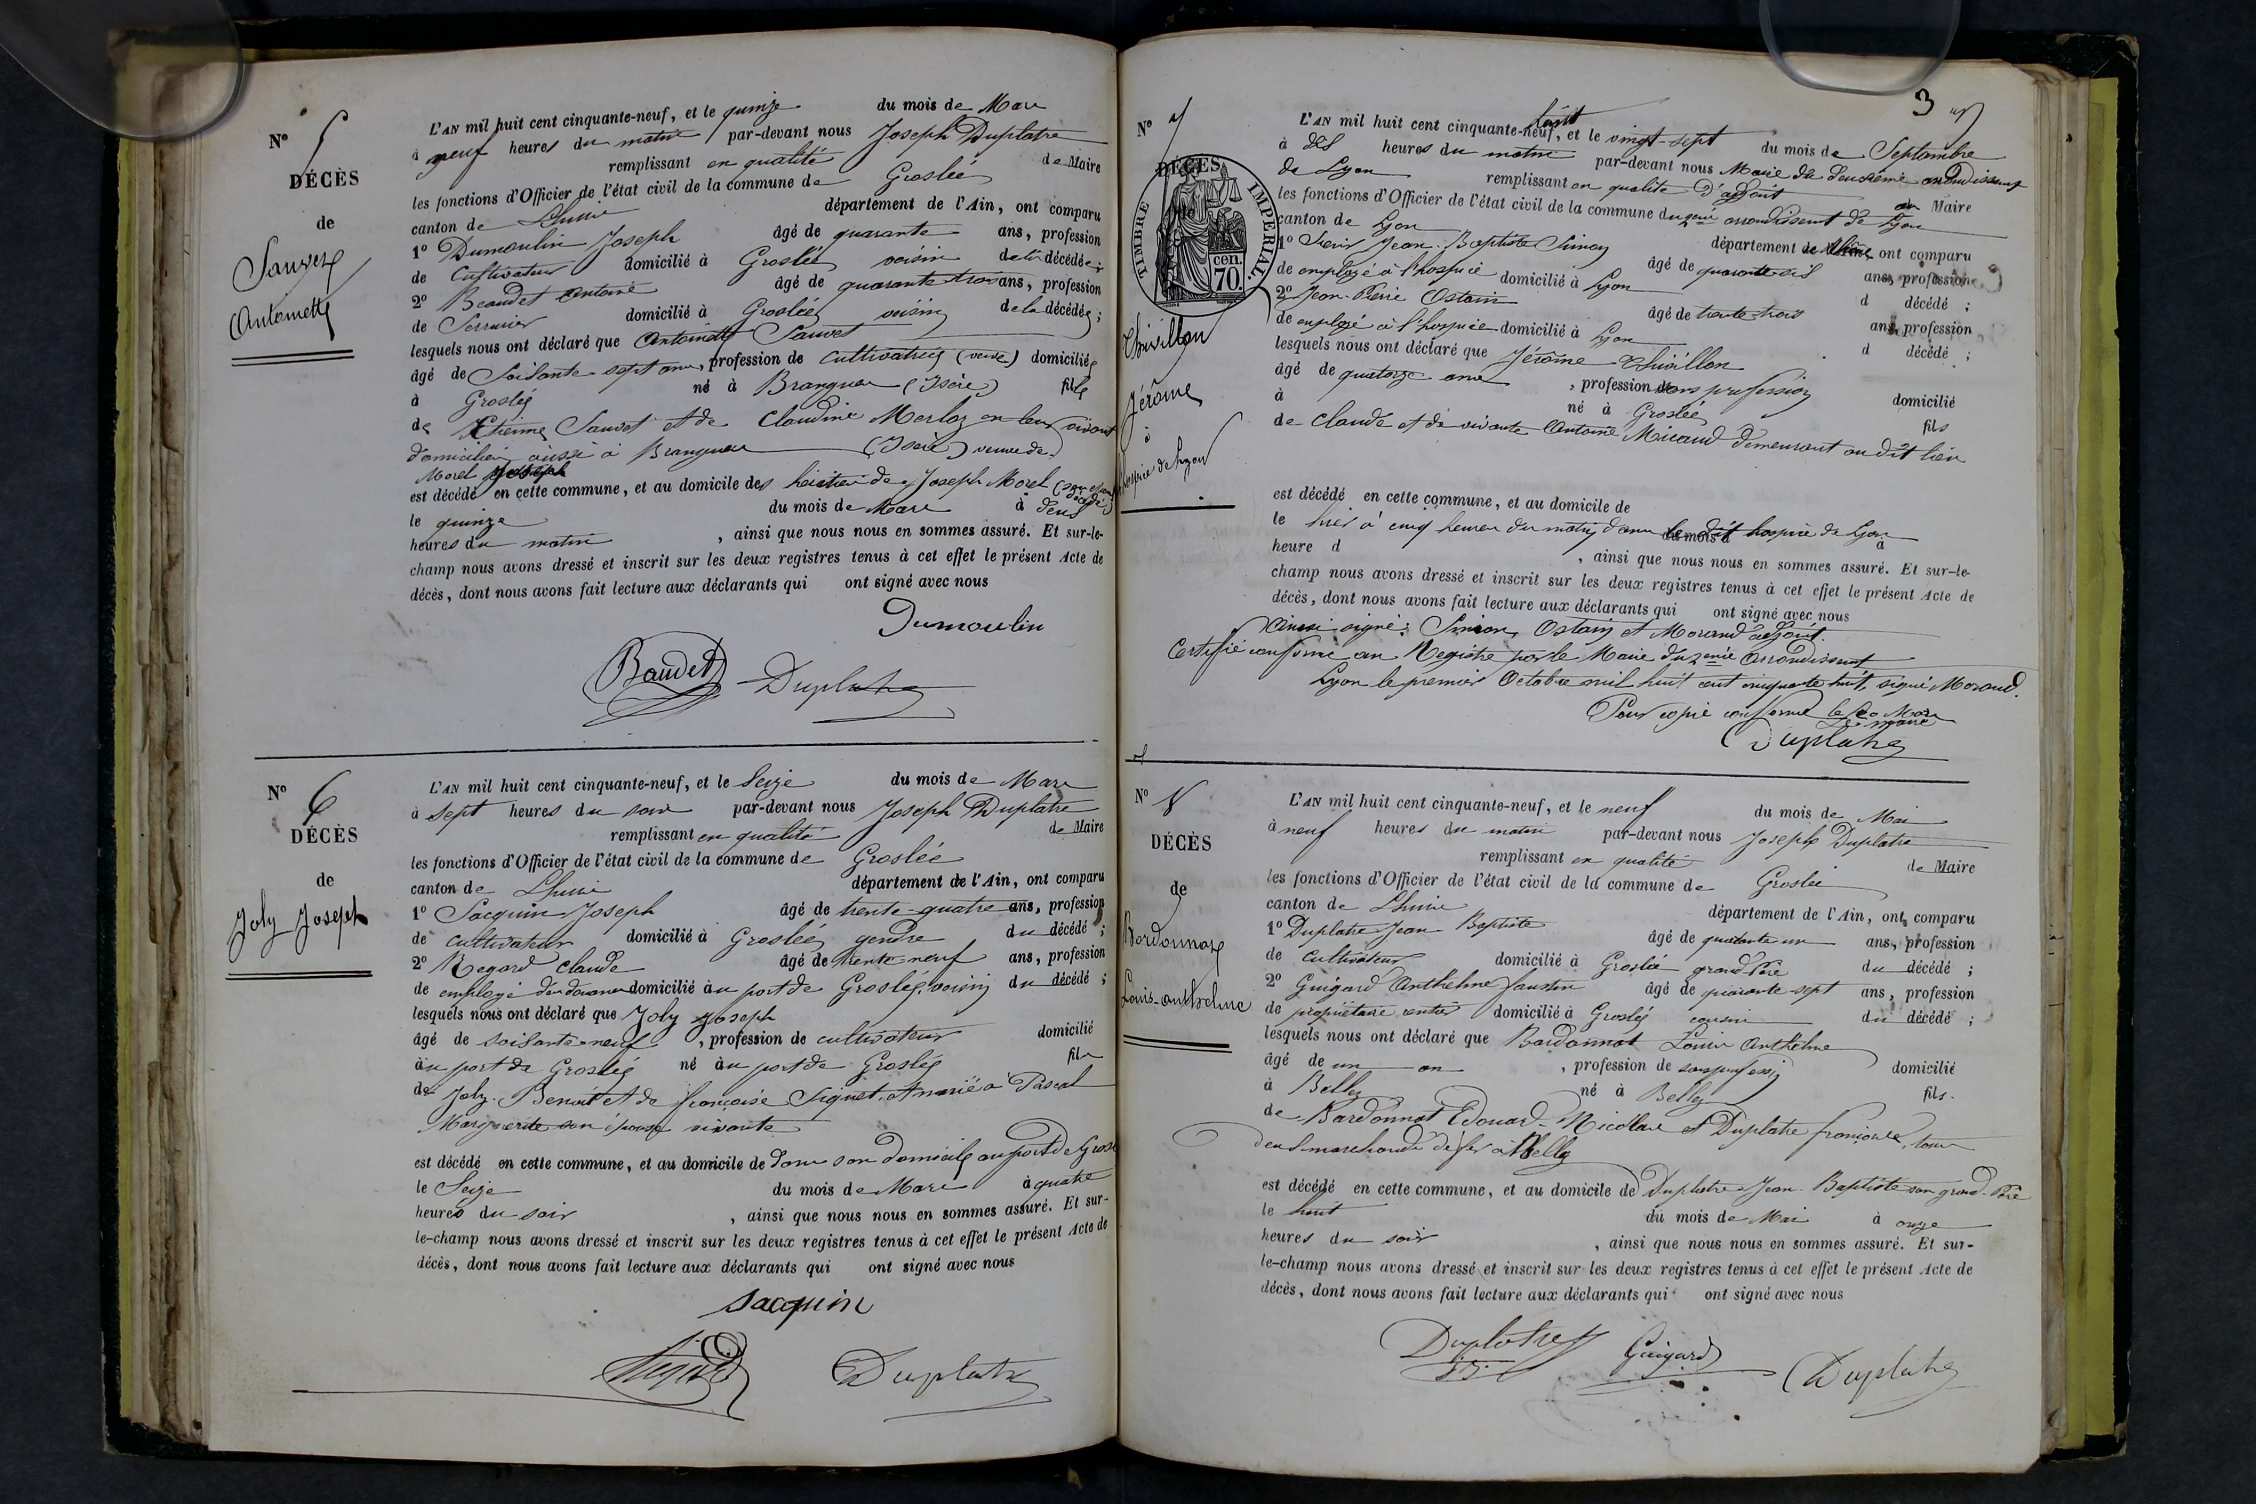 N° 5
DÉCÈS
de
Sauvez
Antoinette
L'AN mil huit cent cinquante-neuf, et le quinze du mois de Mars
à neuf heures du matin par-devant nous Joseph Duplatre
remplissant en qualité de Maire
les fonctions d'Officier de l'état civil de la commune de Groslée
canton de Lhuis département de l'Ain, ont comparu
1° Dumoulin Joseph âgé de quarante ans, profession
de Cultivateur domicilié à Groslée voisin de la décédée;
2° Beaudet Antoine âgé de quarante trois ans, profession
de Serrurier domicilié à Groslée voisin de la décédée;
lesquels nous ont déclaré que Antoinette Sauvet
âgé de Soixante sept ans, profession de Cultivatrice (veuve) domiciliée
à Groslée né à Brangues (Isère) fille
de Etienne Sauvet et de Claudine Merloz en leur vivant
domiciliés aussi à Brangues (Isère) veuve de
Morel Joseph
est décédé en cette commune, et au domicile des héritiers de Joseph Morel décédé
le quinze du mois de Mars à deux
heures du matin, ainsi que nous nous en sommes assuré. Et sur-le-
champ nous avons dressé et inscrit sur les deux registres tenus à cet effet le présent Acte de
décès, dont nous avons fait lecture aux déclarants qui ont signé avec nous
Dumoulin
Baudet Duplatre
N° 6
DÉCÈS
de
Joly Joseph
L'AN mil huit cent cinquante-neuf, et le Seize du mois de Mars
à sept heures du soir par-devant nous Joseph Duplatre
remplissant en qualité de Maire
les fonctions d'Officier de l'état civil de la commune de Groslée
canton de Lhuis département de l'Ain, ont comparu
1° Sacquin Joseph âgé de trente-quatre ans, profession
de cultivateur domicilié à Groslée gendre du décédé;
2° Regard Claude âgé de trente neuf ans, profession
de employé des douanes domicilié au port de Groslée, voisin du décédé;
lesquels nous ont déclaré que Joly Joseph
âgé de soixante neuf, profession de cultivateur domicilié
au port de Groslée né au port de Groslée fils
de Joly Benoit et de françoise Siguet et marié à Pascal
Marguerite son épouse vivante
est décédé en cette commune, et au domicile de dans son domicile au port de Groslée
le Seize du mois de Mars à quatre
heures du soir, ainsi que nous nous en sommes assuré. Et sur-
le-champ nous avons dressé et inscrit sur les deux registres tenus à cet effet le présent Acte de
décès, dont nous avons fait lecture aux déclarants qui ont signé avec nous
Sacquin
Duplatre
3
N° 7
DÉCÈS
de
TIMBRE IMPÉRIAL
70 cen.
Thivillon
Jérôme
à
l'hospice de Lyon
L'AN mil huit cent cinquante-neuf huit, et le vingt-sept du mois de Septembre
à dix heures du matin par-devant nous Maire du deuxième arrondissement
de Lyon remplissant en qualité d'adjoint au Maire
les fonctions d'Officier de l'état civil de la commune du 2eme arrondissement de Lyon
canton de Lyon département du Rhône ont comparu
1° Jean-Baptiste Simon âgé de quarante six ans, profession
de employé à l'hospice domicilié à Lyon d décédé;
2° Jean-Pierre Ostain âgé de trente-trois ans, profession
de employé à l'hospice domicilié à Lyon d décédé;
lesquels nous ont déclaré que Jérôme Thivillon
âgé de quatorze ans, profession sans profession domicilié
à né à Groslée fils
de Claude et de vivante Antoine Micaud demeurant au dit lieu
est décédé en cette commune, et au domicile de
le hier à cinq heures du matin dans le dit hospice de Lyon du mois d à
heure d, ainsi que nous nous en sommes assuré. Et sur-le-
champ nous avons dressé et inscrit sur les deux registres tenus à cet effet le présent Acte de
décès, dont nous avons fait lecture aux déclarants qui ont signé avec nous
Ainsi signé: Simon, Ostain et Morand adjoint.
Certifié conforme au Registre par le Maire du 2eme Arrondissement
Lyon le premier Octobre mil huit cent cinquante huit, signé Morand.
Pour copie conforme le 20 Mars
Le maire
Duplatre
N° 8
DÉCÈS
de
Bordonnoz
Louis-Anthelme
L'AN mil huit cent cinquante-neuf, et le neuf du mois de Mai
à neuf heures du matin par-devant nous Joseph Duplatre
remplissant en qualité de Maire
les fonctions d'Officier de l'état civil de la commune de Groslée
canton de Lhuis département de l'Ain, ont comparu
1° Duplatre Jean Baptiste âgé de quarante un ans, profession
de Cultivateur domicilié à Groslée grand Père du décédé;
2° Guigard Anthelme faustin âgé de quarante sept ans, profession
de propriétaire rentier domicilié à Groslée cousin du décédé;
lesquels nous ont déclaré que Bardonnat Louis Anthelme
âgé de un an, profession de sans profession domicilié
à Belley né à Belley fils
de Bardonnat Edouard-Nicolas et Duplatre françoise, tous
deux marchands de fer à Belley
est décédé en cette commune, et au domicile de Duplatre Jean-Baptiste son grand-Père
le huit du mois de Mai à onze
heures du soir, ainsi que nous nous en sommes assuré. Et sur-
le-champ nous avons dressé et inscrit sur les deux registres tenus à cet effet le présent Acte de
décès, dont nous avons fait lecture aux déclarants qui ont signé avec nous
Duplatre Guigard Duplatre